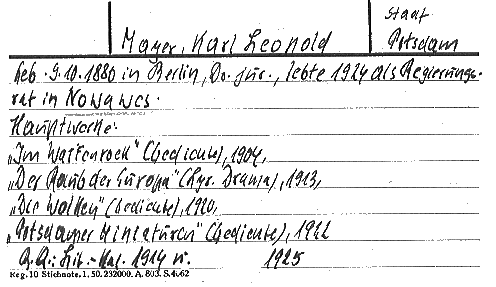 Staat
Mayer, Karl Leopold
Potsdam
Geb. 9.10.1880 in Berlin, Dr. jur., lebte 1924 als Regierungs-
rat in Nowawes.
Hauptwerke:
„Im Waffenrock" (Gedichte), 1904,
„Der Raub der Europa" (Lyr. Drama), 1913,
„Die Wolken" (Gedichte), 1920,
„Potsdamer Miniaturen" (Gedichte), 1922
Q.Q.: Lit.-Kal. 1914 u. 1925
Reg. 10 Stichnote. 1, 50. 232000. A. 803. S. 4.62